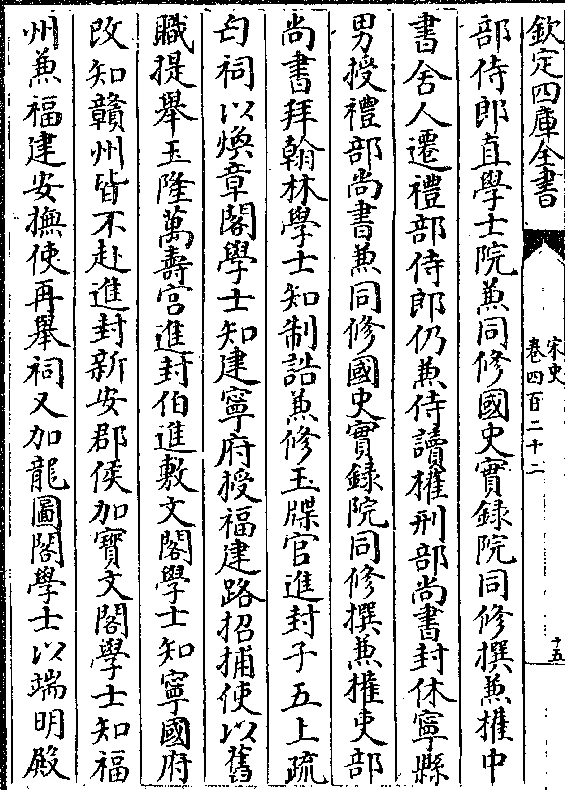 欽定四庫全書
宋史
卷四百二十二
十五
部侍郎直學士院兼同修國史實録院同修撰兼權中
書舍人遷禮部侍郎仍兼侍讀權刑部尚書封休寧縣
男授禮部尚書兼同修國史實録院同修撰兼權吏部
尚書拜翰林學士知制誥兼修玉牒官進封子五上疏
匄祠以煥章閣學士知建寧府授福建路招捕使以舊
職提舉玉隆萬壽宫進封伯進敷文閣學士知寧國府
改知贛州皆不赴進封新安郡侯加寶文閣學士知福
州兼福建安撫使再舉祠又加龍圖閣學士以端明殿